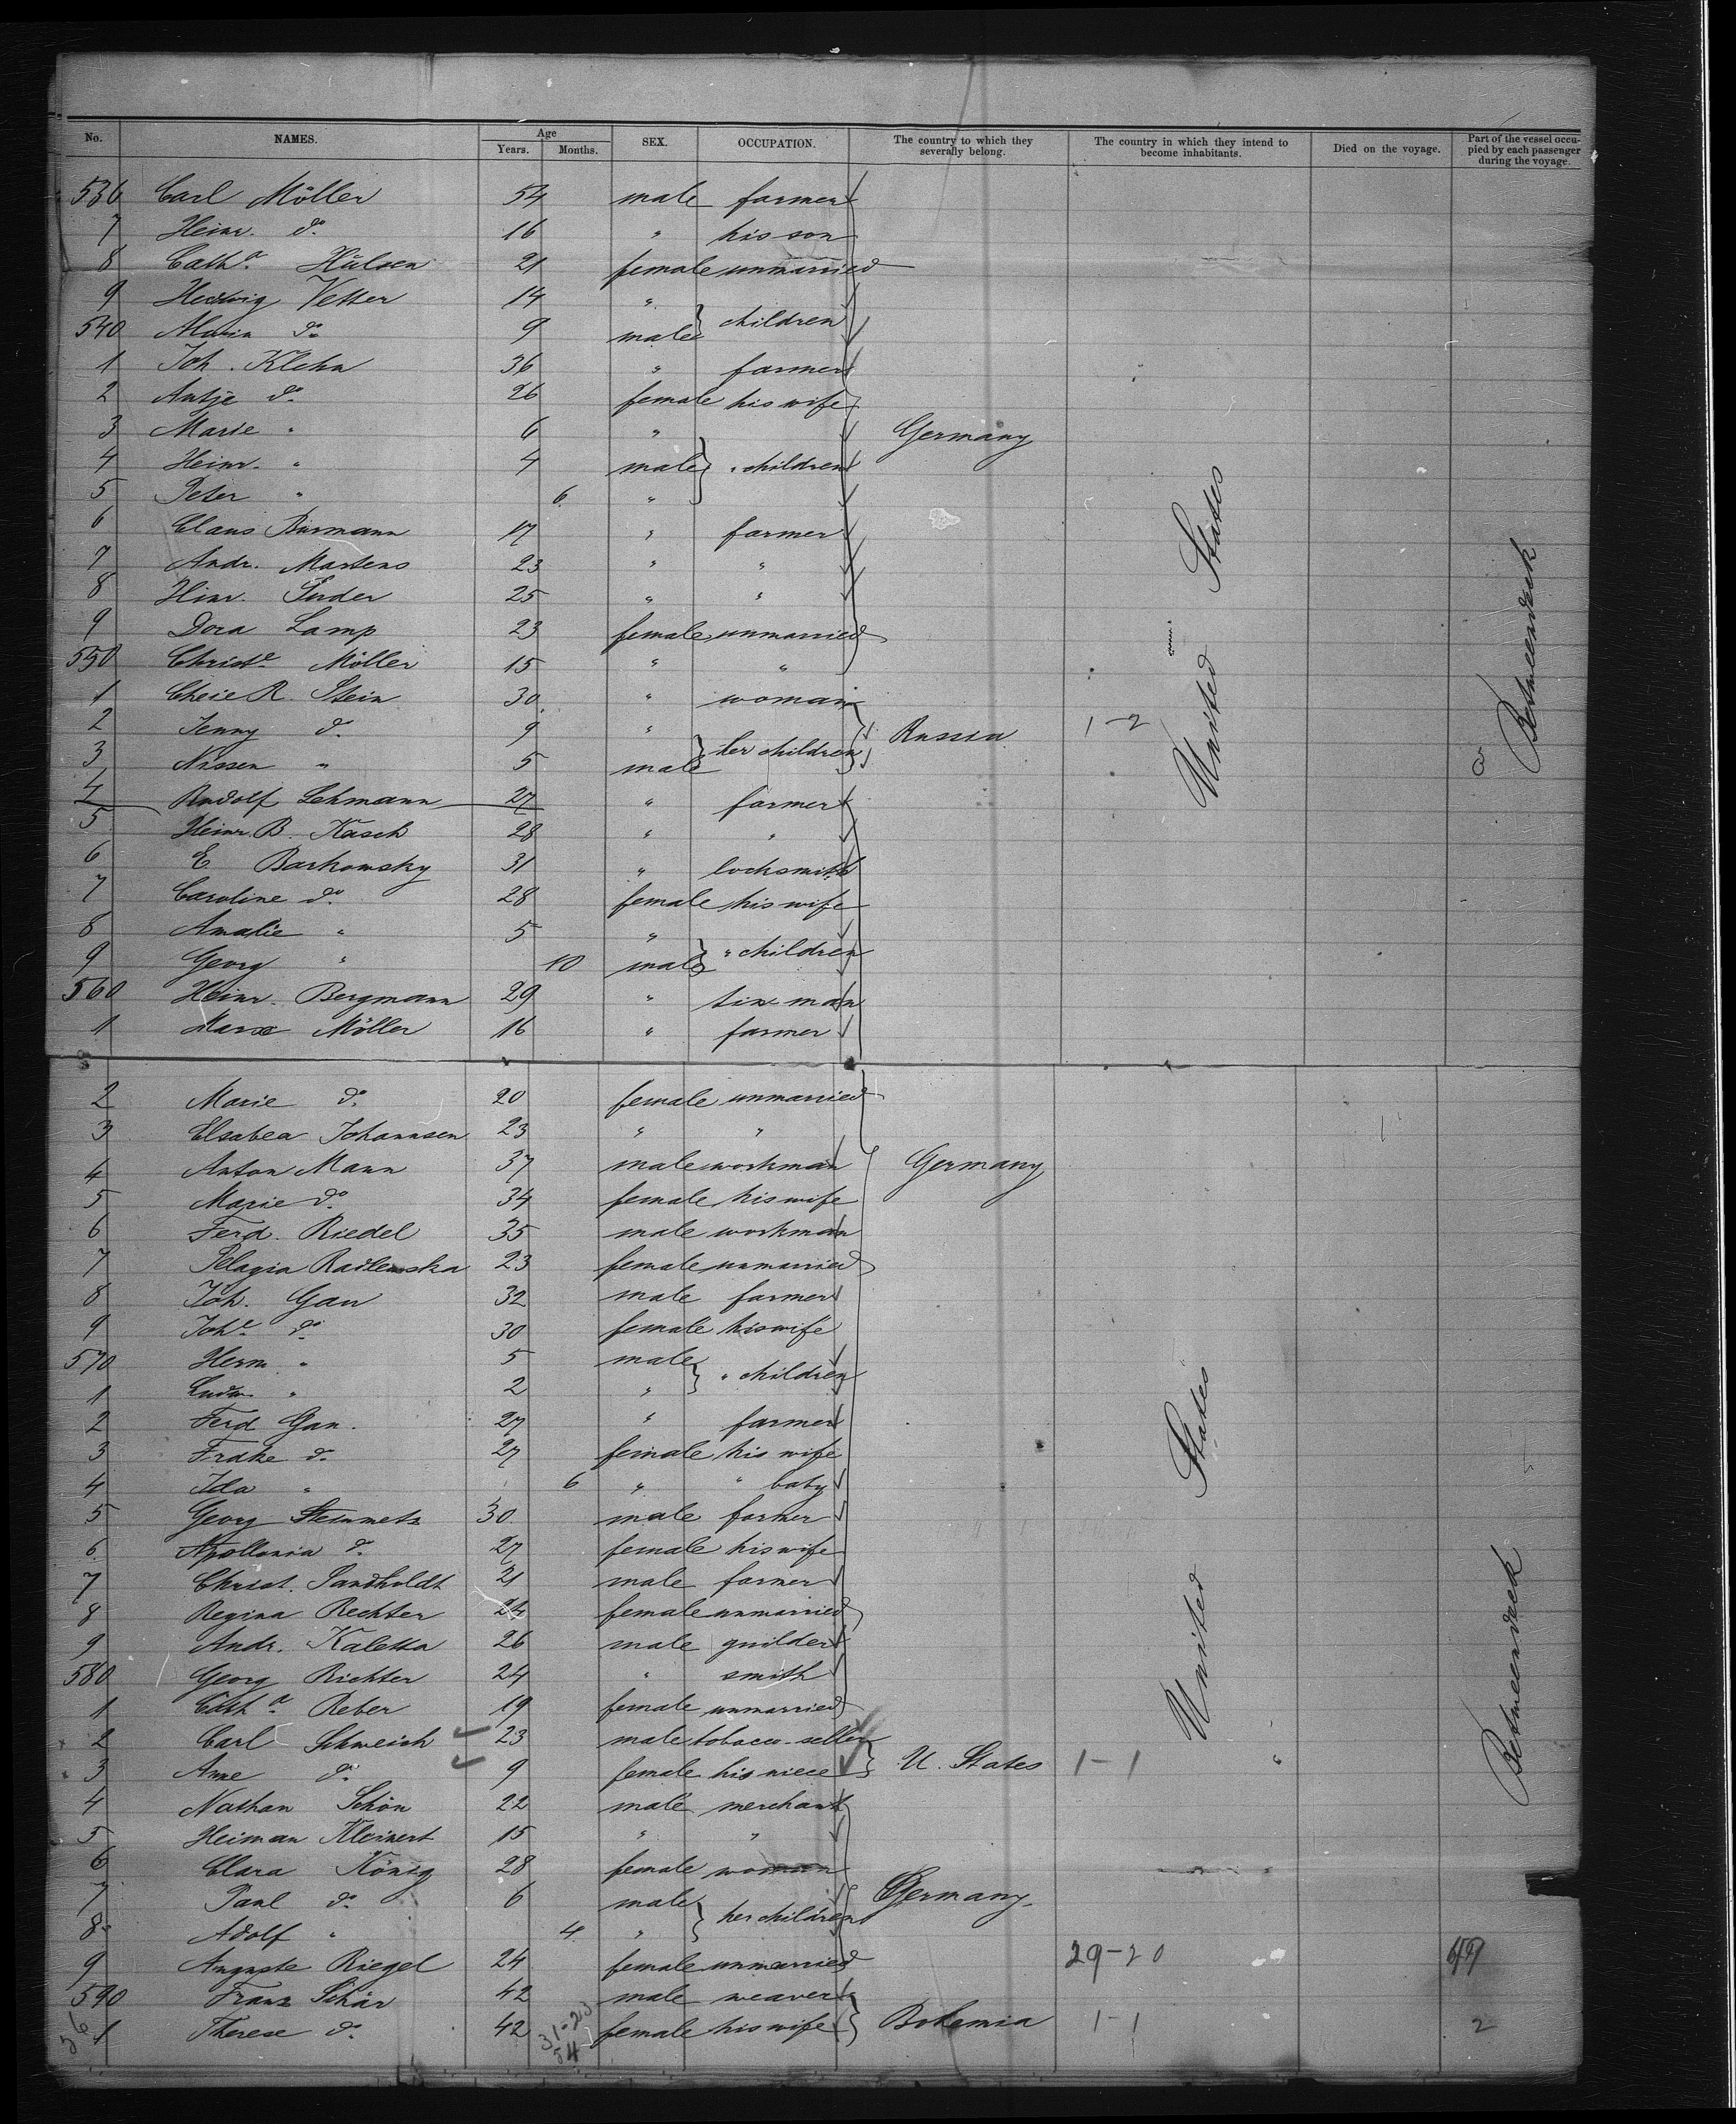 No. NAMES. Age Years. Months. SEX. OCCUPATION. The country to which they severally belong. The country in which they intend to become inhabitants. Died on the voyage. Part of the vessel occupied by each passenger during the voyage.
536 Carl Möller 54 male farmer
7 Heinr. do. 16 " his son
8 Catha. Hülsen 21 female unmarried
9 Hedwig Vetter 14 " children
540 Alwin do. 9 male
1 Joh. Klehn 36 " farmer
2 Antje do. 26 female his wife
3 Marie " 6 " Germany
4 Heinr. " 4 male " children
5 Peter " 6 "
6 Claus Burmann 17 " farmer
7 Andr. Martens 23 " "
8 Hinr. 25 " "
9 Dora Lamp 23 female unmarried
550 Christe Möller 15 " "
1 R. Stein 30 " woman
2 Jenny do. 9 " her children Russia 1-2
3 Nissen " 5 male 3
4 Rudolf Lehmann 27 " farmer
5 Heinr. B. Kasch 28 " "
6 E Barkowsky 31 " locksmith
7 Caroline do. 28 female his wife
8 Amalie " 5 " " children
9 Georg " 10 male
560 Heinr. Bergmann 29 " tin man
1 Marx Möller 16 " farmer
United States
Betweendeck
2 Marie do. 20 female unmarried
3 Elsabea Johannsen 23 " "
4 Anton Mann 37 male workman Germany
5 Marie do. 34 female his wife
6 Ferd. Riedel 35 male workman
7 Pelagia Radlewska 23 female unmarried
8 Joh. Gau 32 male farmer
9 Johe. do. 30 female his wife
570 Herm. " 5 male " children
1 Ludw. " 2 "
2 Ferd Gau. 27 " farmer
3 Frdke do. 27 female his wife
4 Ida " 6 " " baby
5 Georg Steinmetz 30 male farmer
6 Apollonia do. 27 female his wife
7 Christ. Sandholdt 21 male farmer
8 Regina Rechter 24 female unmarried
9 Andr. Kaletta 26 male guilder
580 Georg Richter 24 " smith
1 Catha. Reber 19 female unmarried
2 Carl Schweich 23 male tobacco-seller
3 Anne do. 9 female his niece U. States 1-1
4 Nathan Schön 22 male merchant
5 Heiman Kleinert 15 " "
6 Clara König 28 female woman
7 Paul do. 6 male her children Germany
8 Adolf " 4 "
9 Auguste Riegel 24 female unmarried 29-20
590 Franz Schär 42 male weaver
1 Therese do. 42 female his wife Bohemia 1-1 2
United States
Betweendeck
56
31-23
54